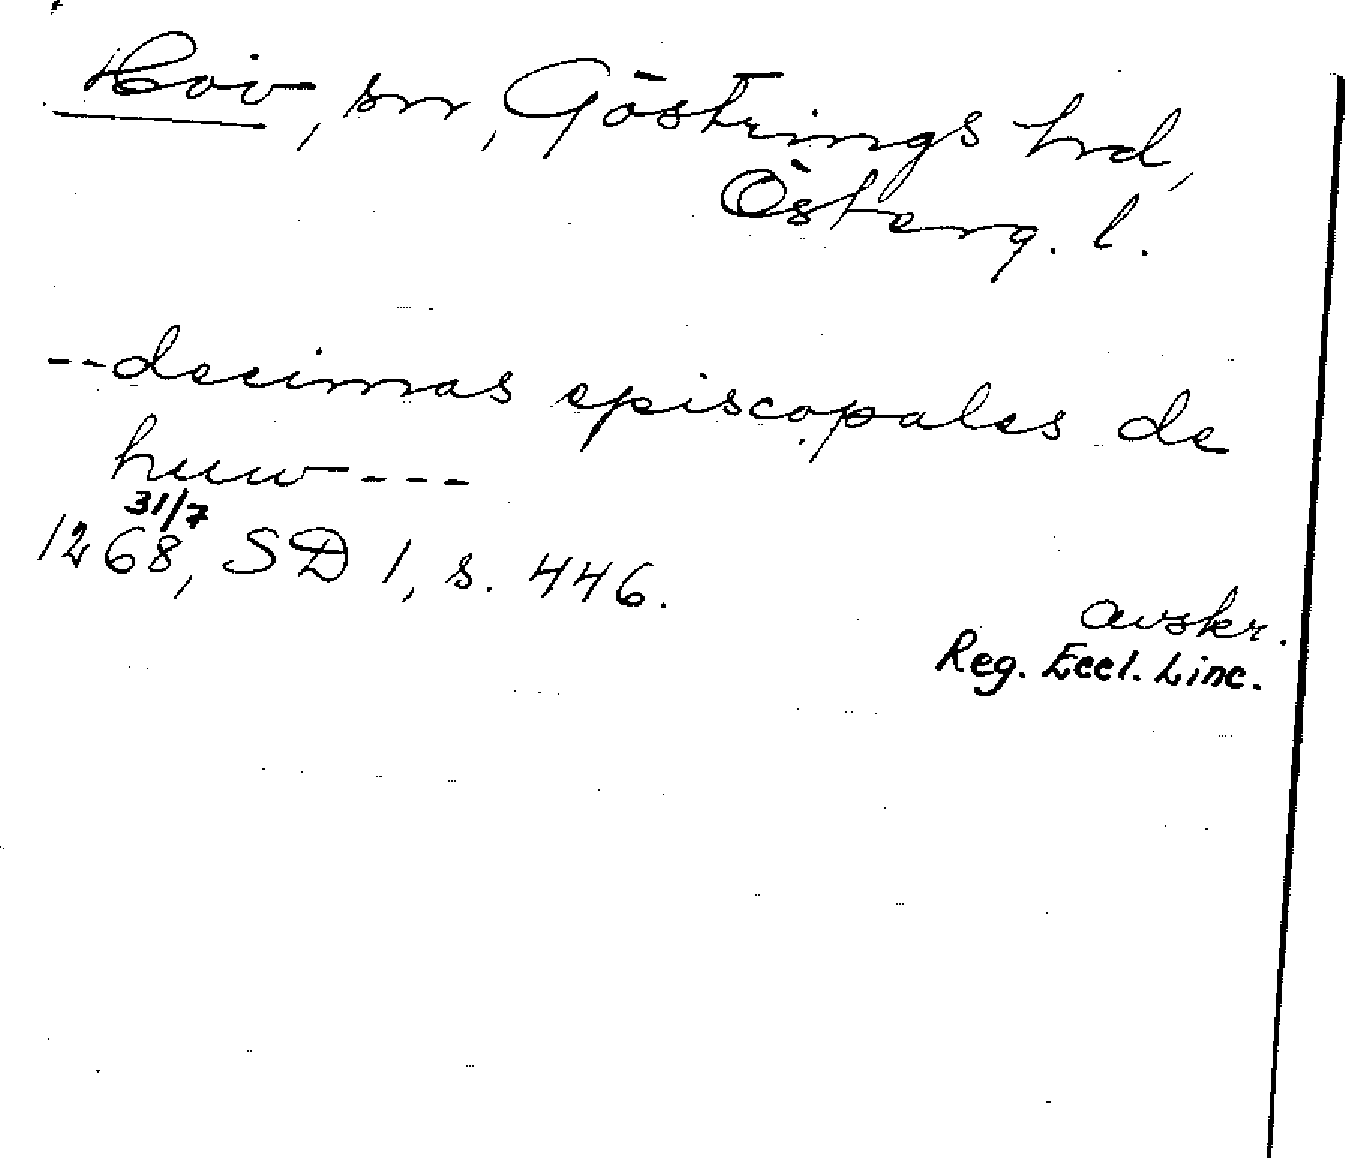 Hov, sn, Göstrings hrd,
Österg. l.
--decimas episcopales de
huw---
31/7
1268, SD 1, s. 446.
avskr.
Reg. Eccl. Linc.